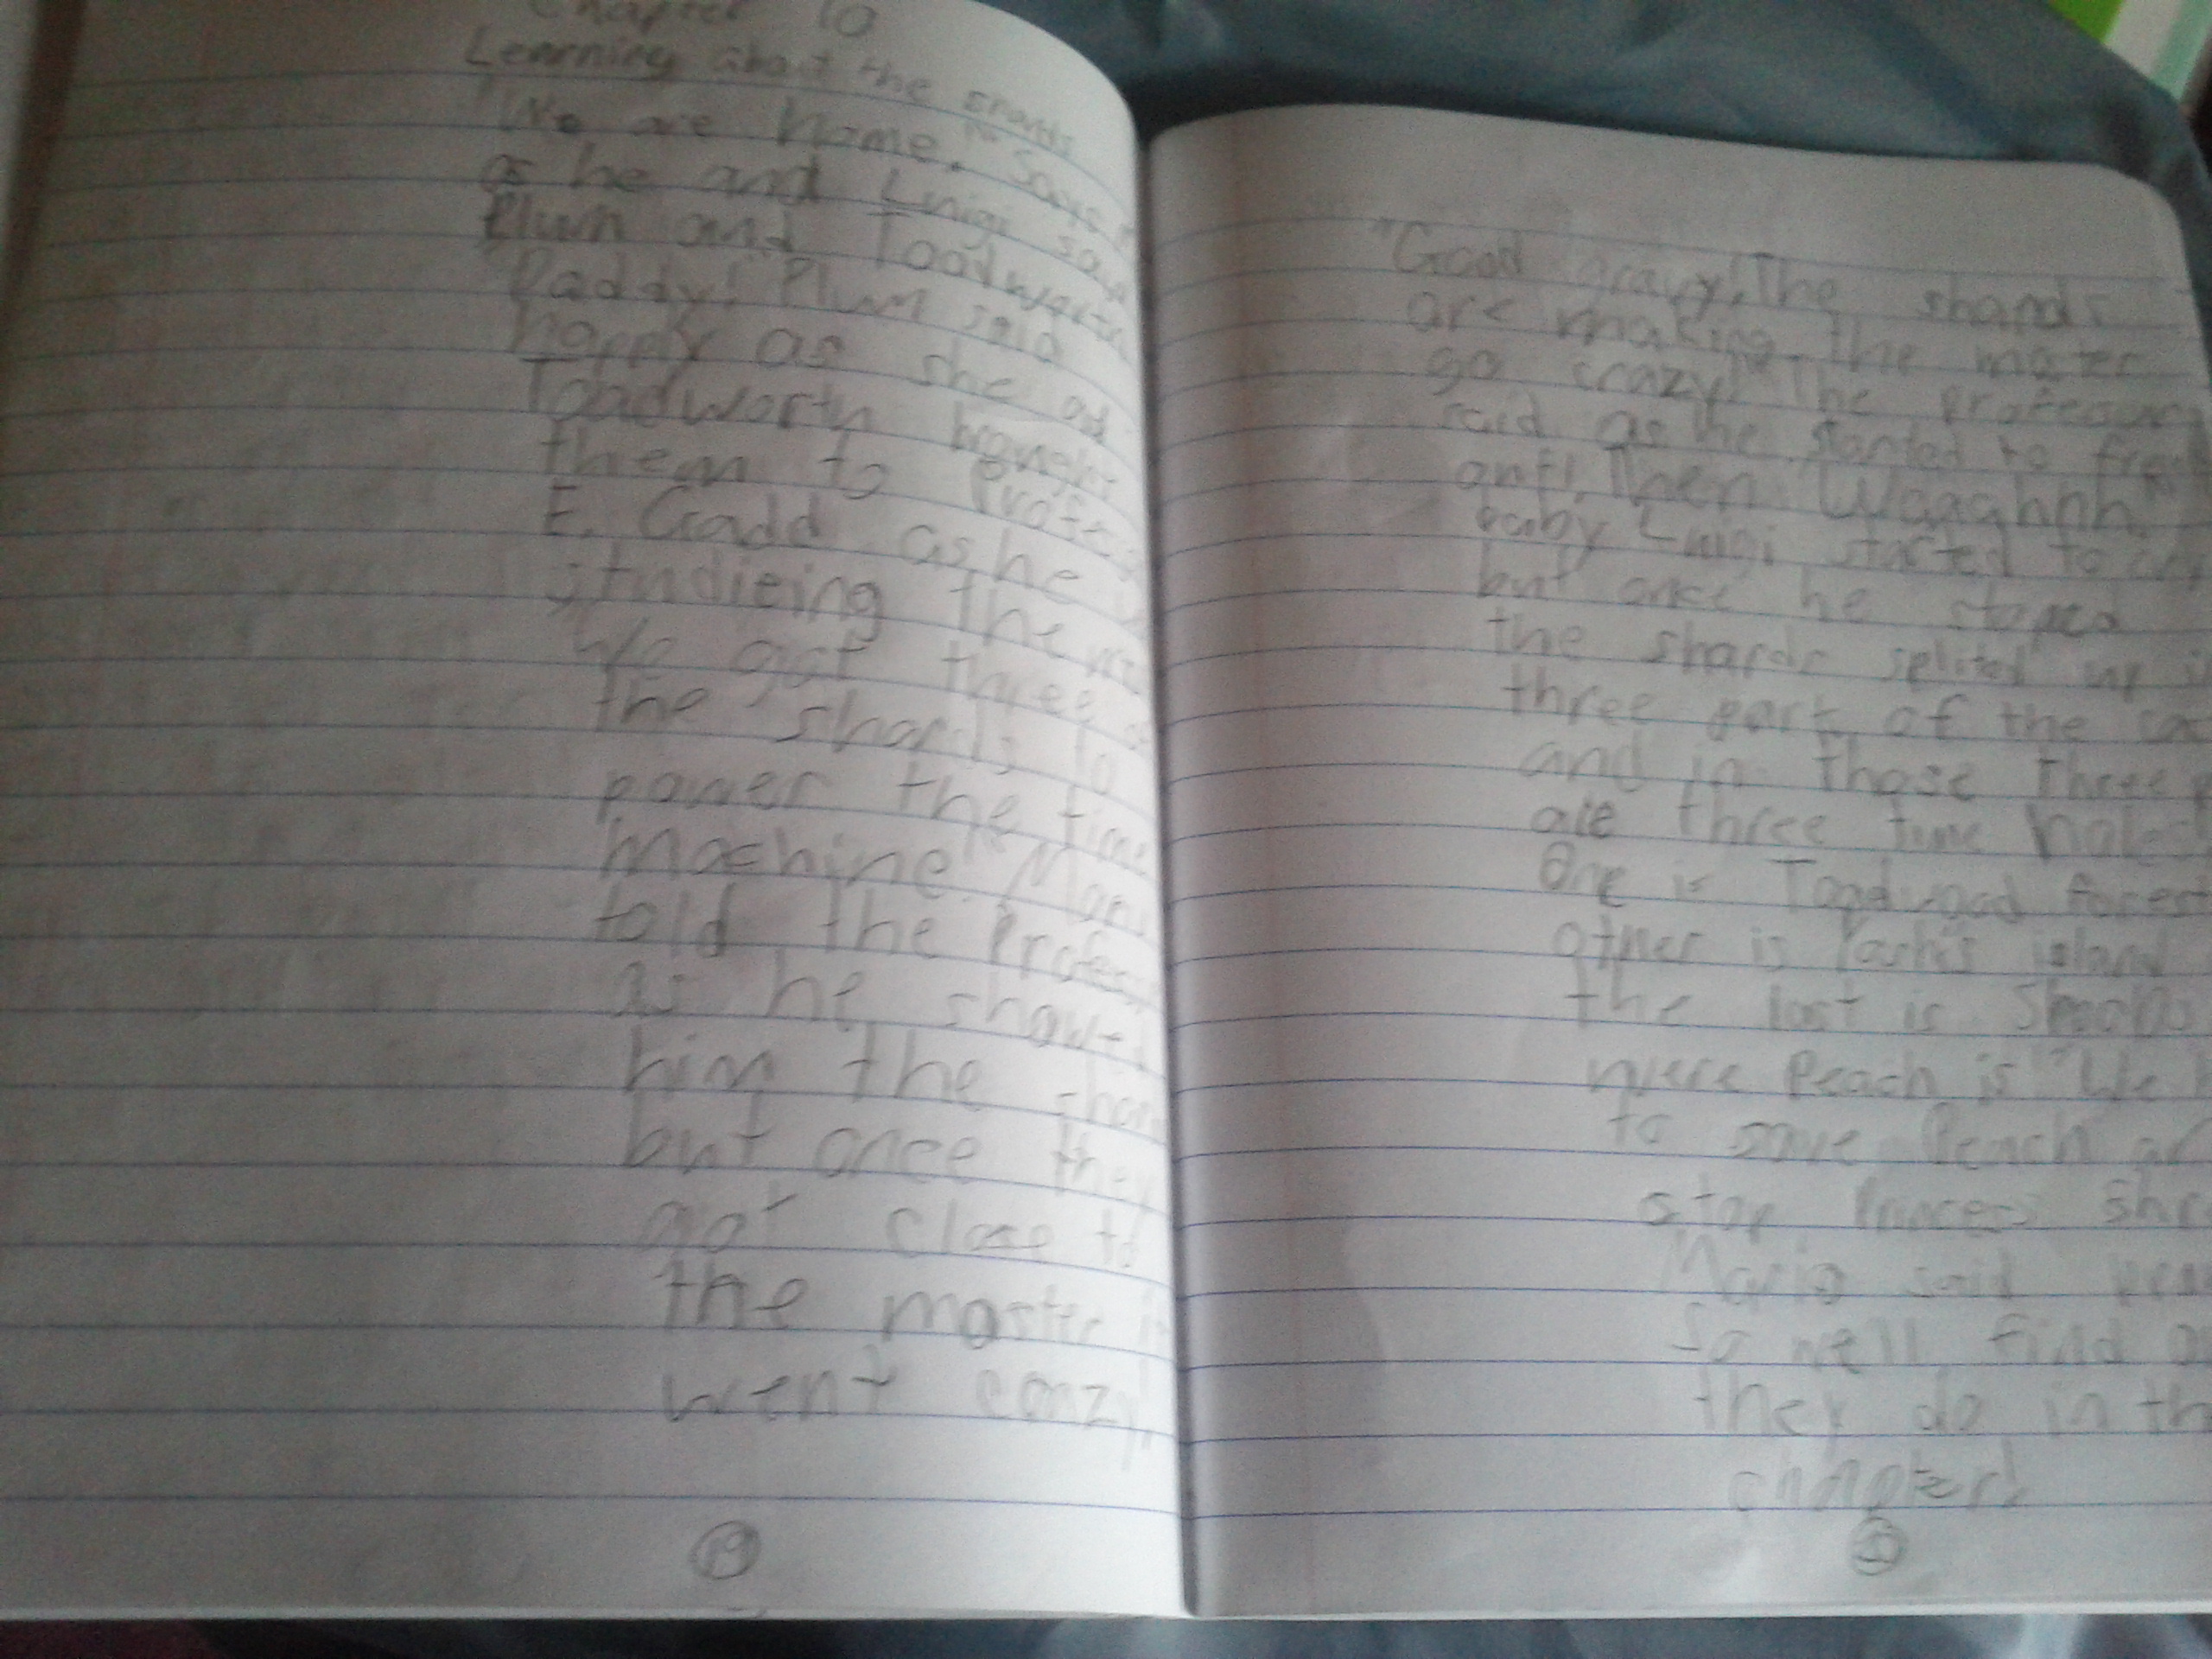 Chapter 10
Learning about the
"We are home," Says
as he and Luigi saw
Plum and Toadworth
"Daddy! Plum said
happly as she ad
Toadworth brought
them to Profes
E. Gadd as he
studieing the
We got three of
the shards to
power the time
machine" Mario
told the Profess
as he showed
him the shar
but once they
got close to
the master it
went carzy!
19
"Good gravy! The shards
are making the master
go crazy! The professor
said as he started to freak
out! Then "Waaghhh"
baby Luigi started to cry
but once he stoped
the shards splited up in
three part of the
and in those three
are three time holes
One is Toadwood forest
other is Yoshi's island
the last is
were Peach is "We h
to save Peach an
stop Princess Shr
Mario said
So we'll find o
they do in th
chapter!